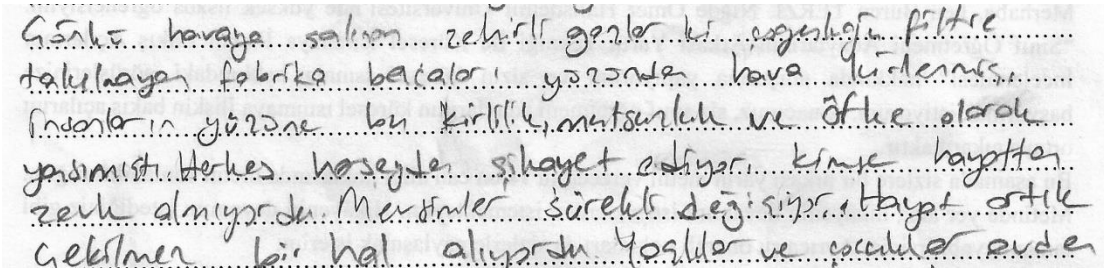 Çünkü havaya salınan zehirli gazlar ki çogunlugu filtre
takılmayan fabrika bacaları yüzünden hava kirlenmiş
insanların yüzüne bu kirlilik, mutsuzluk ve öfke olarak
yansımıştı. Herkes herşeyden şikayet ediyor, kimse hayattan
zevk almıyordu. Mevsimler sürekli degişiyor. Hayat artık
çekilmez bir hal alıyordu. Yaşlılar ve çocuklar evden